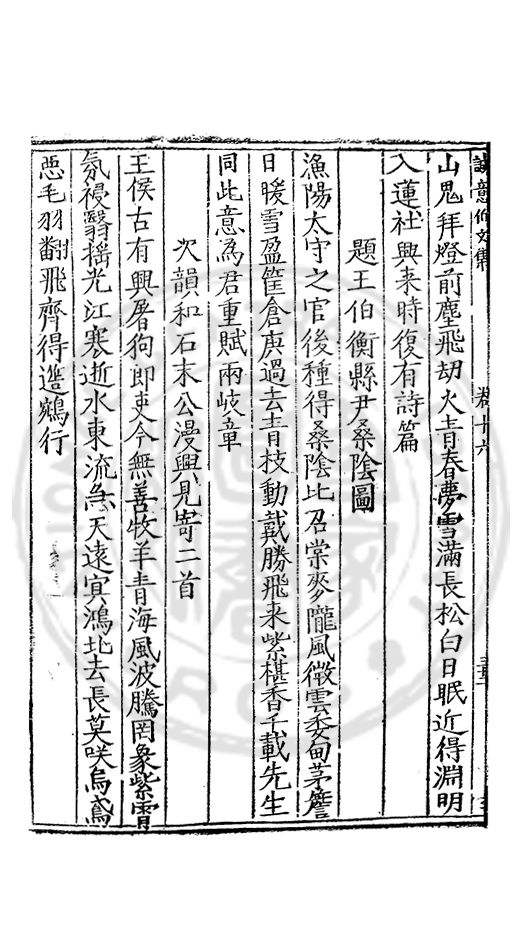 誠意伯文集 卷十六
山鬼拜燈前塵飛刼火青春夢雪滿長松白日眠近得淵明
入蓮社興来時復有詩篇
題王伯衡縣尹桑陰圖
漁陽太守之官後種得桑陰比召棠麥隴風微雲委甸茅簷
日暖雪盈筐倉庚過去青枝動戴勝飛来紫椹香千載先生
同此意為君重賦兩岐章
次韻和石末公漫興見寄二首
王侯古有興屠狗郎吏今無善牧羊青海風波騰罔象紫霄
氛祲翳揺光江寒逝水東流急天遠㝠鴻北去長莫咲烏鳶
惡毛羽翻飛齊得造鵷行